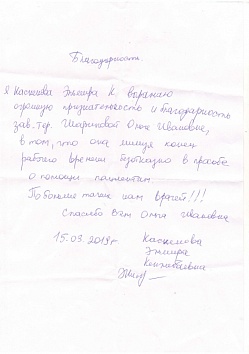 Благодарность.
Я Касымова Эльмира К. выражаю
огромную признательность и благодарность
зав. тер. Ольге Ивановне,
в том, что она конец
рабочего времени в просьбе
о помощи пациентам.
Побольше таких нам врачей!!!
Спасибо Вам Ольга Ивановна
15.03.2019г Касымова
Эльмира